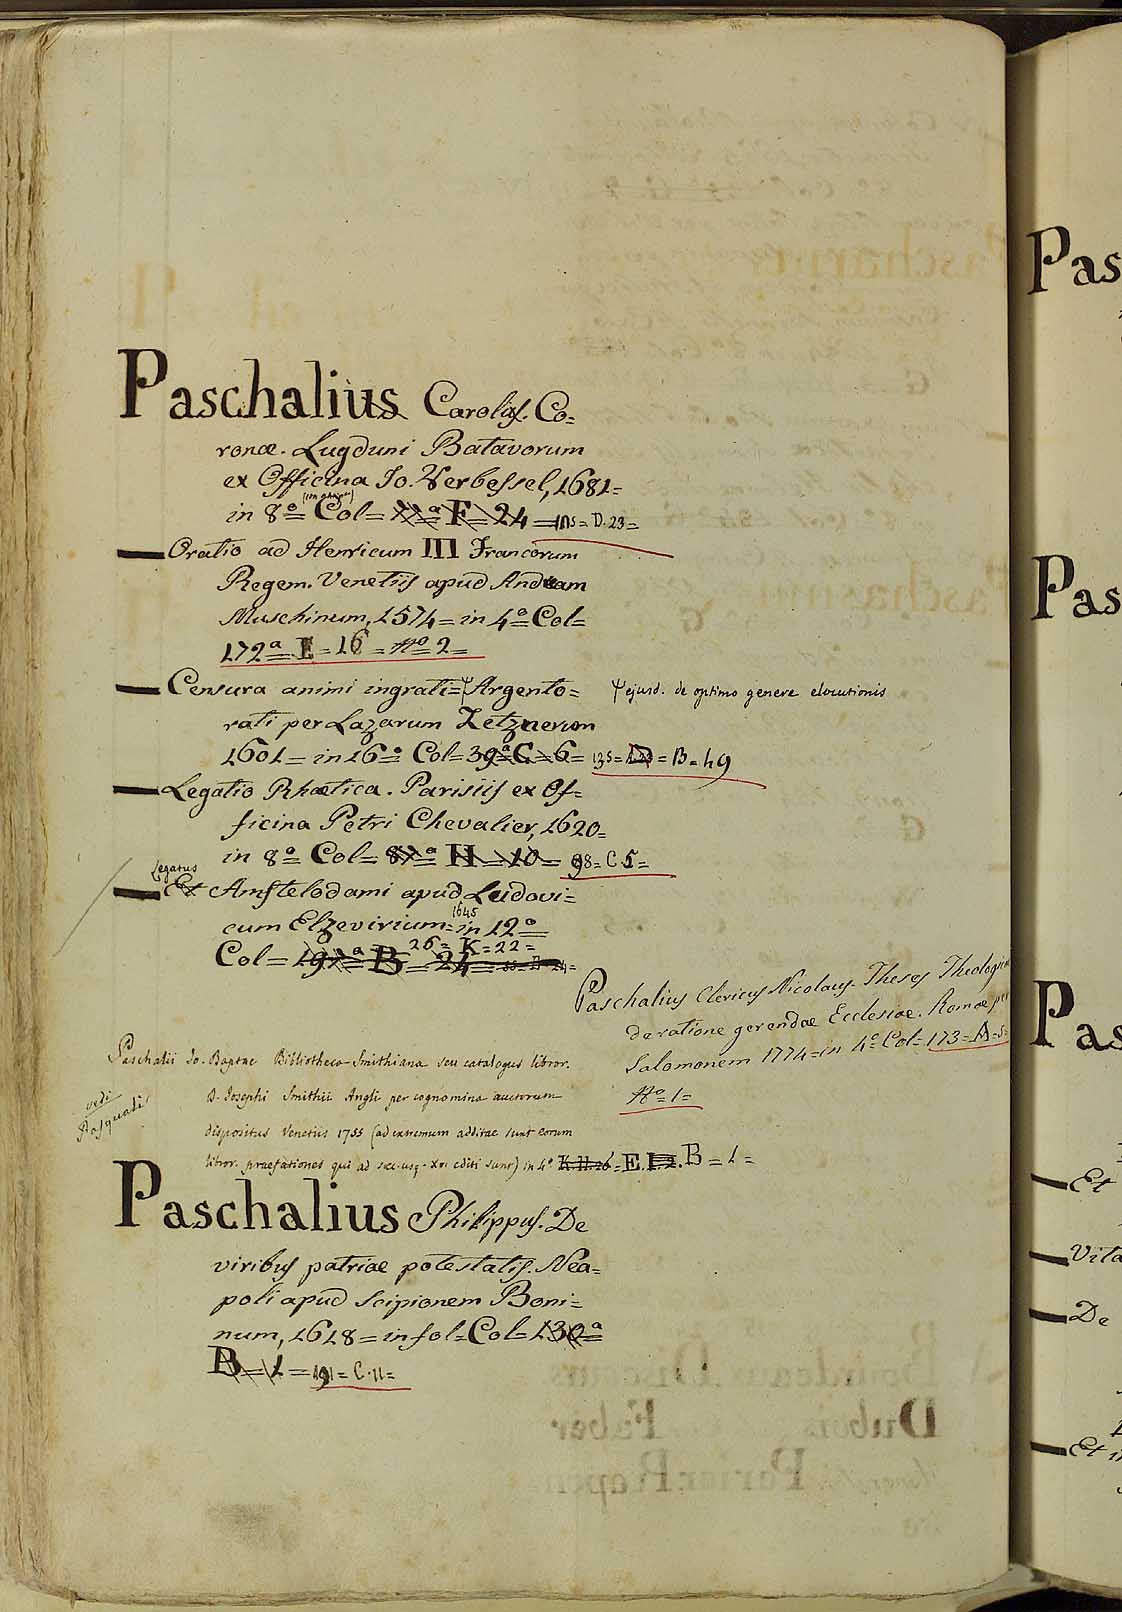 Paschalius Carolus. Co=
ronæ. Lugduni Batavorum
ex Officina Jo. Verbessel, 1681=
in 8º Col= 11ª F= 24 = 115= D. 23=
Oratio ad Henricum III Francorum
Regem. Venetiis apud Andream
Muschinum, 1574= in 4º Col=
172ª E= 16 = Nº 2=
Censura animi ingrati= Ψ Argento=
Ψ ejusd. de optimo genere elocutionis
rati per Lazarum Zetznerum
1601= in 16º Col= 39ª C= 6= 135= = B= 49
Legatio Rhœtica. Parisiis ex Of=
ficina Petri Chevalier, 1620=
in 8º Col= 87ª H= 10= 98= C 5=
Legatus
Et Amstelodami apud Ludovi=
cum Elzevirium= 1645 in 12º
26= K= 22=
Col= 197ª B= 24=
Paschalius Clericus Nicolaus. Theses Theologicæ
de ratione gerendæ Ecclesiae. Romæ per
Salomonem 1774= in 4º Col= 173= A= 5
Nº= 1=
Paschalii Jo. Baptae Bibliotheca Smithiana seu catalogus libror.
vedi
Pasquali
D. Josephi Smithii Angli per cognomina auctorum
dispositus Venetiis 1755 (ad extremum additae sunt eorum
libror. praefationes qui ad sæc. usq. XVI editi sunt) in 4º K. H. 26= E. B= 1=
Paschalius Philippus. De
viribus patriae potestatis. Nea=
poli apud Scipionem Boni=
num, 1618= in fol= Col= 130ª
B= 1= 191= C. 11=
Pas
Pas
Pas
Et
Vita
De
Et i